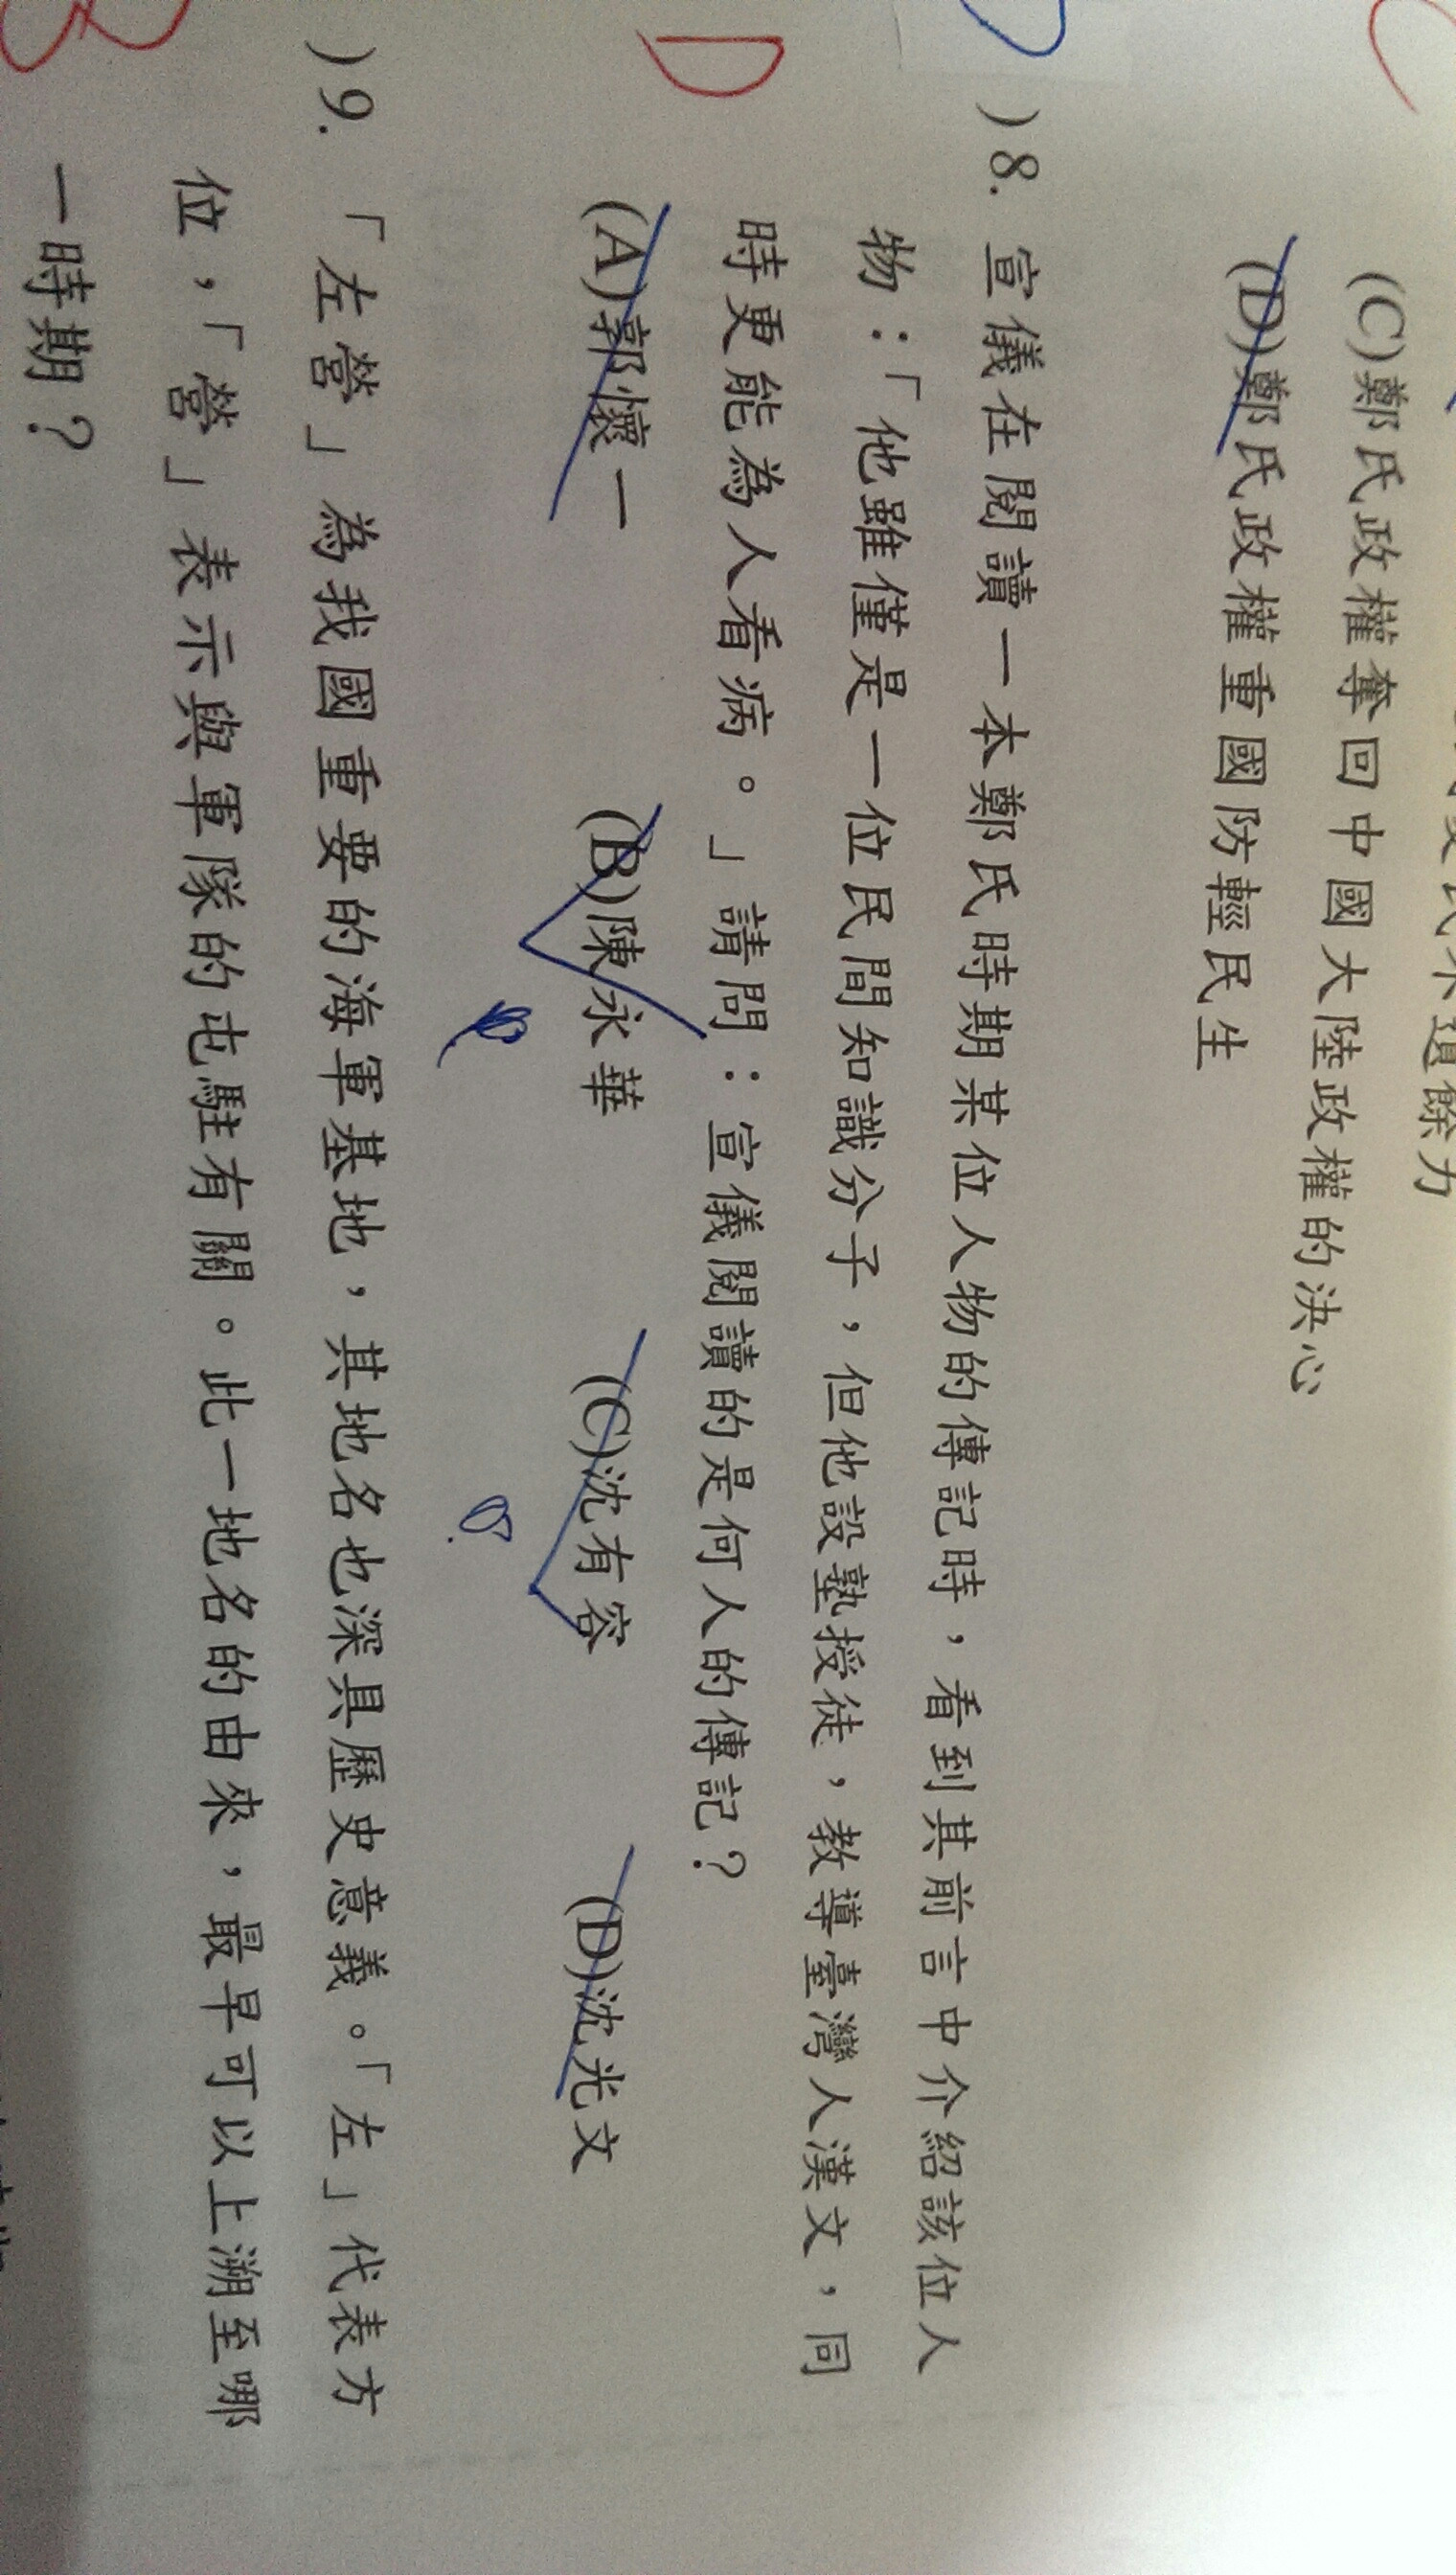 (C)鄭氏政權奪回中國大陸政權的決心
(D)鄭氏政權重國防輕民生
)8. 宣儀在閱讀一本鄭氏時期某位人物的傳記時，看到其前言中介紹該位人
物：「他雖僅是一位民間知識分子，但他設塾授徒，教導臺灣人漢文，同
時更能為人看病。」請問：宣儀閱讀的是何人的傳記？
D
(A)郭懷一 (B)陳永華 (C)沈有容 (D)沈光文
)9. 「左營」為我國重要的海軍基地，其地名也深具歷史意義。「左」代表方
位，「營」表示與軍隊的屯駐有關。此一地名的由來，最早可以上溯至哪
一時期？